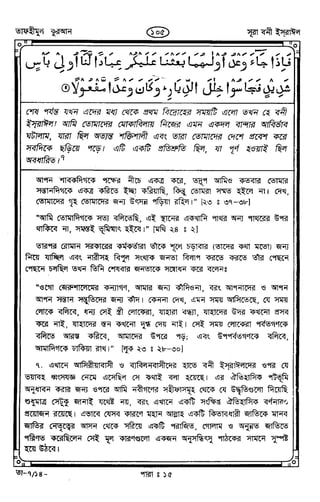 তাফহীমুল কুরআন
১০৫
সূরা বনী ইসরাঈল
فَإِذَا جَاءَ وَعْدُ أُولٰىهُمَا بَعَثْنَا عَلَيْكُمْ عِبَادًا لَّنَا أُولِي بَأْسٍ
شَدِيدٍ فَجَاسُوا خِلٰلَ الدِّيَارِ ۚ وَكَانَ وَعْدًا مَّفْعُولًا ⑤
শেষ পর্যন্ত যখন এদের মধ্য থেকে প্রথম বিদ্রোহের সময়টি এলো তখন হে বনী
ইসরাঈল! আমি তোমাদের মোকাবিলায় নিজের এমন একদল বান্দার আবির্ভাব
ঘটালাম, যারা ছিল অত্যন্ত শক্তিশালী এবং তারা তোমাদের দেশে প্রবেশ করে
সবদিকে ছড়িয়ে পড়ে। এটি একটি প্রতিশ্রুতি ছিল, যা পূর্ণ হওয়াই ছিল
অবধারিত।৭
আপন শাবকদিগকে পক্ষের নীচে একত্র করে, তদ্রূপ আমিও কতবার তোমার
সন্তানদিগকে একত্র করিতে ইচ্ছা করিয়াছি, কিন্তু তোমরা সম্মত হইলে না। দেখ,
তোমাদের গৃহ তোমাদের জন্য উৎসন্ন পড়িয়া রহিল।" [২৩ : ৩৭-৩৮]
"আমি তোমাদিগকে সত্য বলিতেছি, এই স্থানের একখানি পাথর অন্য পাথরের উপর
থাকিবে না, সমস্তই ভূমিসাৎ হইবে।" [মথি ২৪ : ২]
তারপর রোমান সরকারের কর্মকর্তারা তাঁকে শূলে চড়াবার (তাদের কথা মতো) জন্য
নিয়ে যাচ্ছিল এবং নারীসহ বিপুল সংখ্যক জনতা বিলাপ করতে করতে তাঁর পেছনে
পেছনে চলছিল তখন তিনি শেষবার জনতাকে সম্বোধন করে বলেন :
"ওগো জেরুশালেমের কন্যাগণ, আমার জন্য কাঁদিওনা, বরং আপনাদের ও আপন
আপন সন্তান সন্ততিদের জন্য কাঁদ। কেননা দেখ, এমন সময় আসিতেছে, যে সময়
লোকে বলিবে, ধন্য সেই স্ত্রী লোকেরা, যাহারা বন্ধ্যা, যাহাদের উদর কখনো প্রসব
করে নাই, যাহাদের স্তন কখনো দুগ্ধ দেয় নাই। সেই সময় লোকেরা পর্বতগণকে
বলিতে আরম্ভ করিবে, আমাদের উপরে পড়; এবং উপপর্বতগণকে বলিবে,
আমাদিগকে ঢাকিয়া রাখ।" [লুক ২৩ : ২৮-৩০]
৭. এখানে আসিরীয়াবাসী ও ব্যাবিলনবাসীদের হাতে বনী ইসরাঈলদের ওপর যে
ভয়াবহ ধ্বংসযজ্ঞ নেমে এসেছিল সে কথাই বলা হয়েছে। এর ঐতিহাসিক পটভূমি
অনুধাবন করার জন্য ওপরে আমি নবীগণের সহীফাসমূহ থেকে যে উদ্ধৃতিগুলো দিয়েছি
শুধুমাত্র সেটুকু জানাই যথেষ্ট নয়, বরং এখানে একটি সংক্ষিপ্ত ঐতিহাসিক বর্ণনারও
প্রয়োজন রয়েছে। এভাবে যেসব কারণে মহান আল্লাহ একটি কিতাবধারী জাতিকে মানব
জাতির নেতৃত্বের আসন থেকে সরিয়ে একটি পরাজিত, গোলাম ও অনুন্নত জাতিতে
পরিণত করেছিলেন সেই মূল কারণগুলো একজন অনুসন্ধিৎসু পাঠকের সামনে সুস্পষ্ট
হয়ে উঠবে।
তা-৭/১৪-
পারা : ১৫